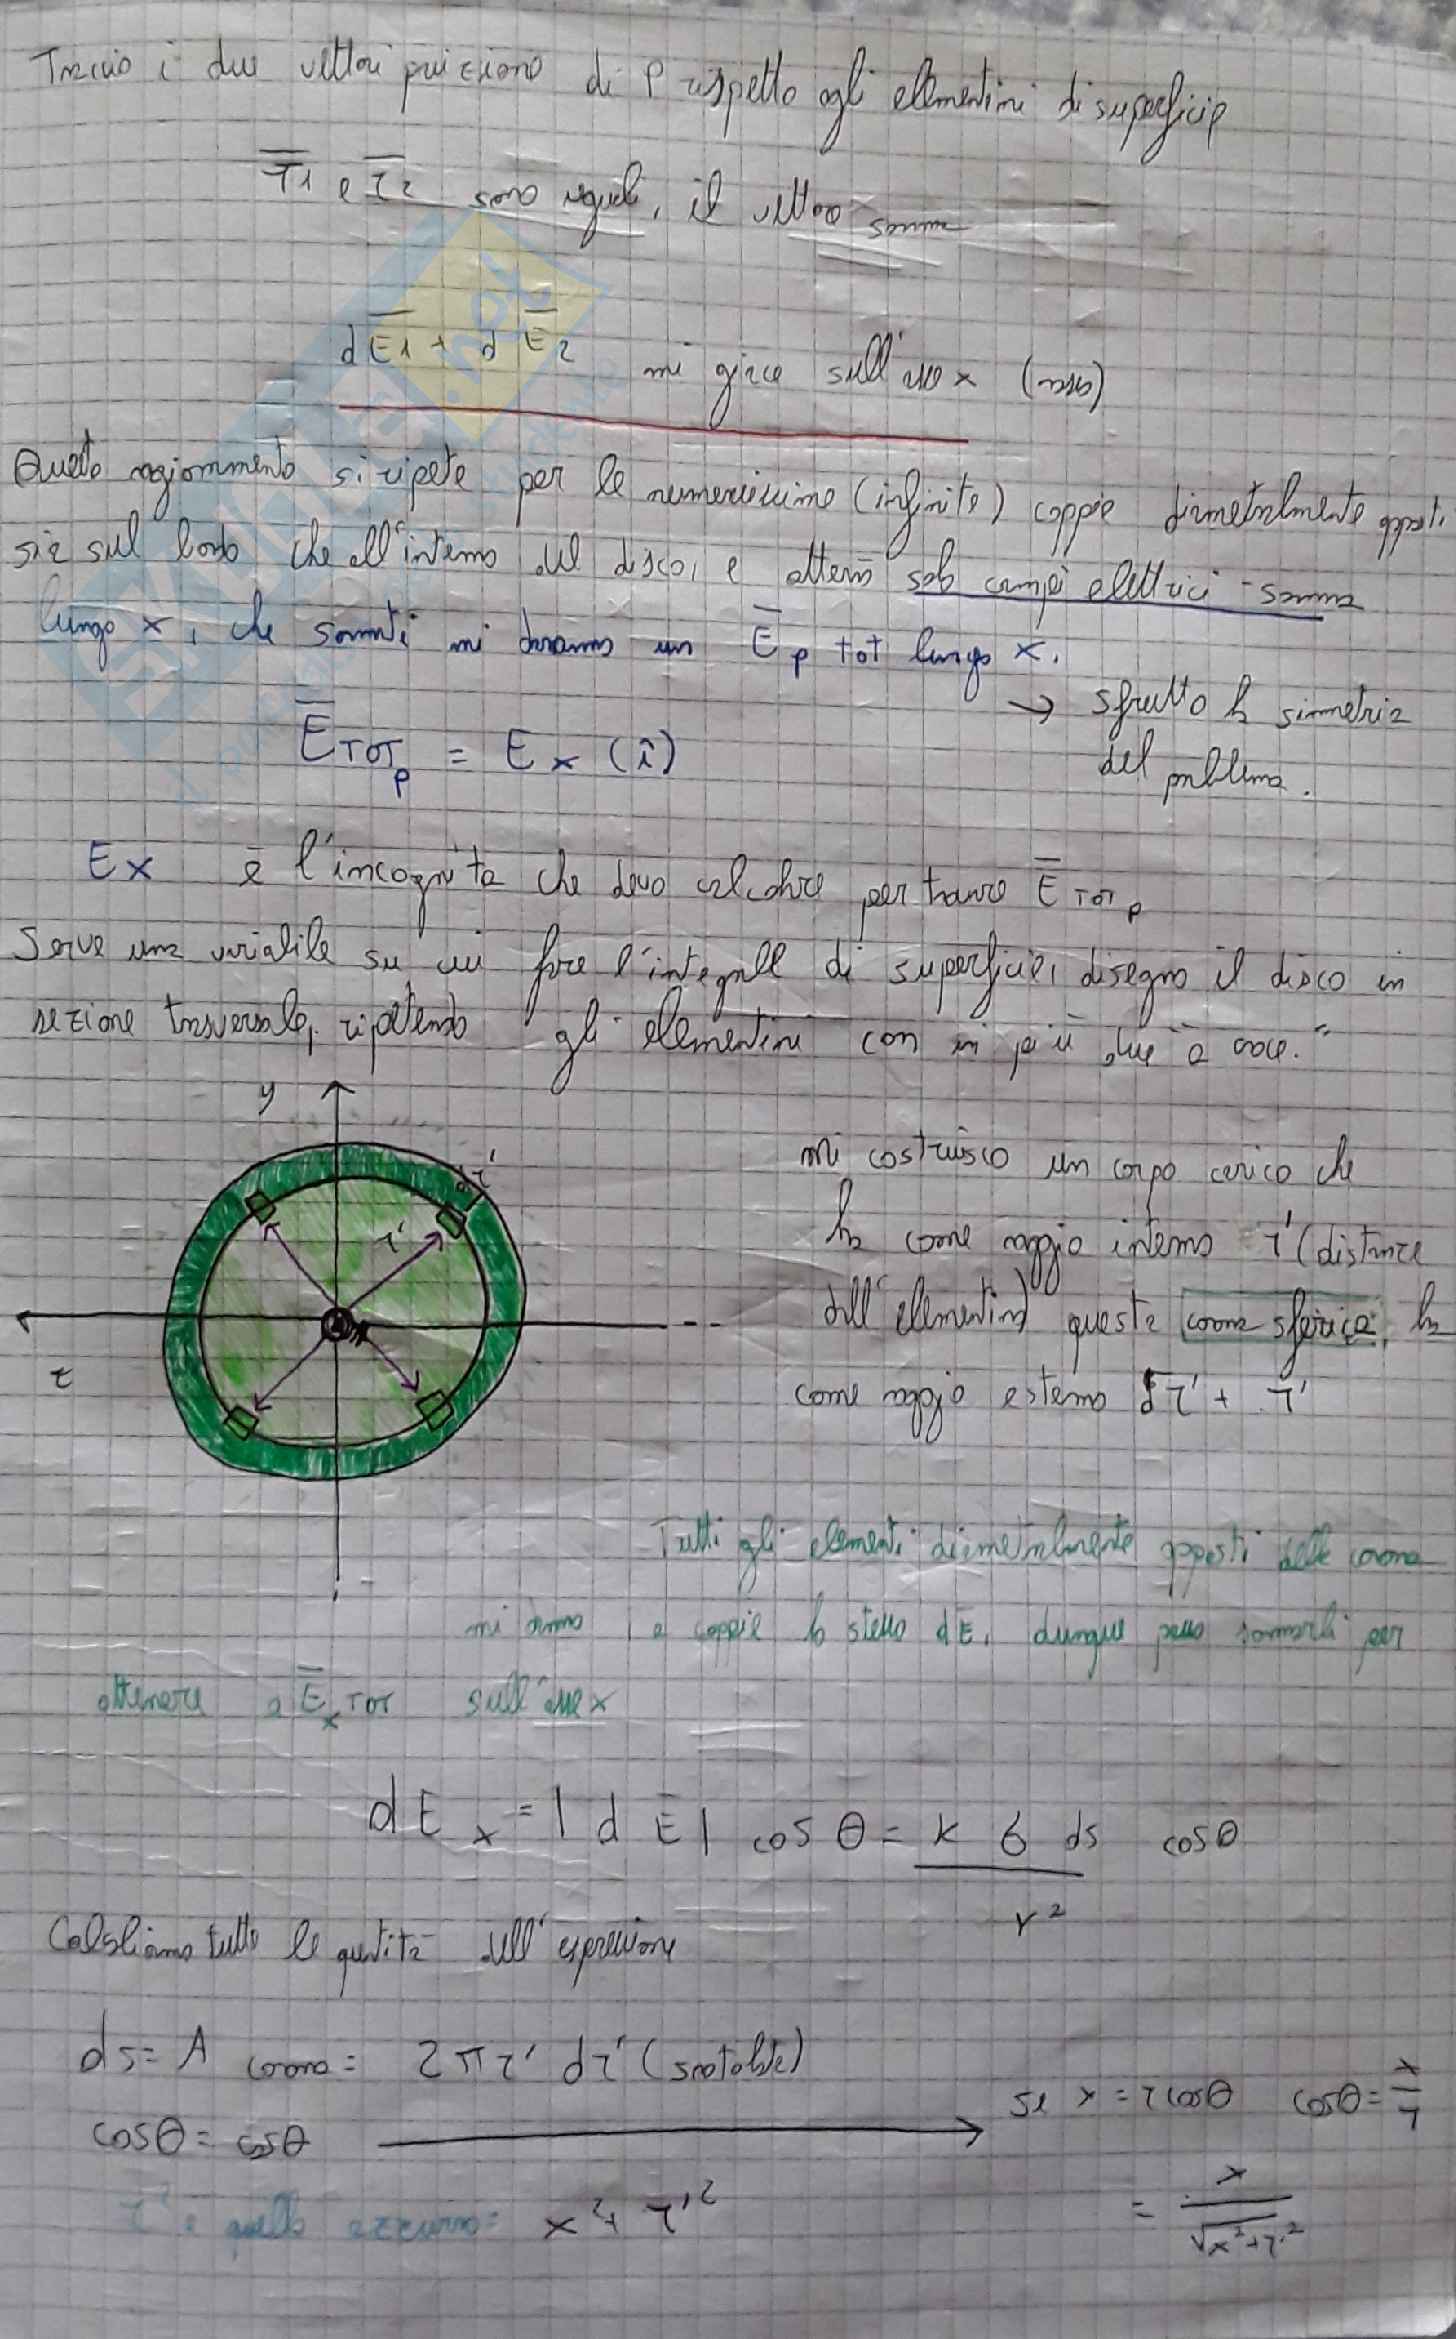 Traccio i due vettori posizione di P rispetto agli elementini di superficie
r1 e r2 sono uguali, il vettore somma
dE1 + dE2 mi giace sull'asse x (rosso)
Questo ragionamento si ripete per le numerosissime (infinite) coppie diametralmente opposti,
sia sul bordo che all'interno del disco, e otterrò solo campi elettrici-somma
lungo x, che sommati mi daranno un Ep tot lungo x.
→ sfrutto la simmetria
del problema.
ETOTp = Ex (î)
Ex è l'incognita che devo calcolare per trovare ETOTp
Serve una variabile su cui fare l'integrale di superficie, disegno il disco in
sezione trasversale, ripetendo gli elementini con in più due "a croce."
y
dr'
r'
z
mi costruisco un corpo carico che
ha come raggio interno r' (distanza
dall'elementino) questa corona sferica, ha
come raggio esterno dr' + r'
Tutti gli elementi diametralmente opposti della corona
mi danno, a coppie lo stesso dE, dunque posso sommarli per
ottenere a Ex TOT sull'asse x
dEx = |dE| cos θ = k б ds / r² cosθ
Calcoliamo tutte le quantità dell'espressione
ds = A corona = 2πr' dr' (scatolette)
cosθ = cosθ → se x = r cosθ cosθ = x/r
= x/√x²+r'²
r² è quello azzurro = x² + r'²